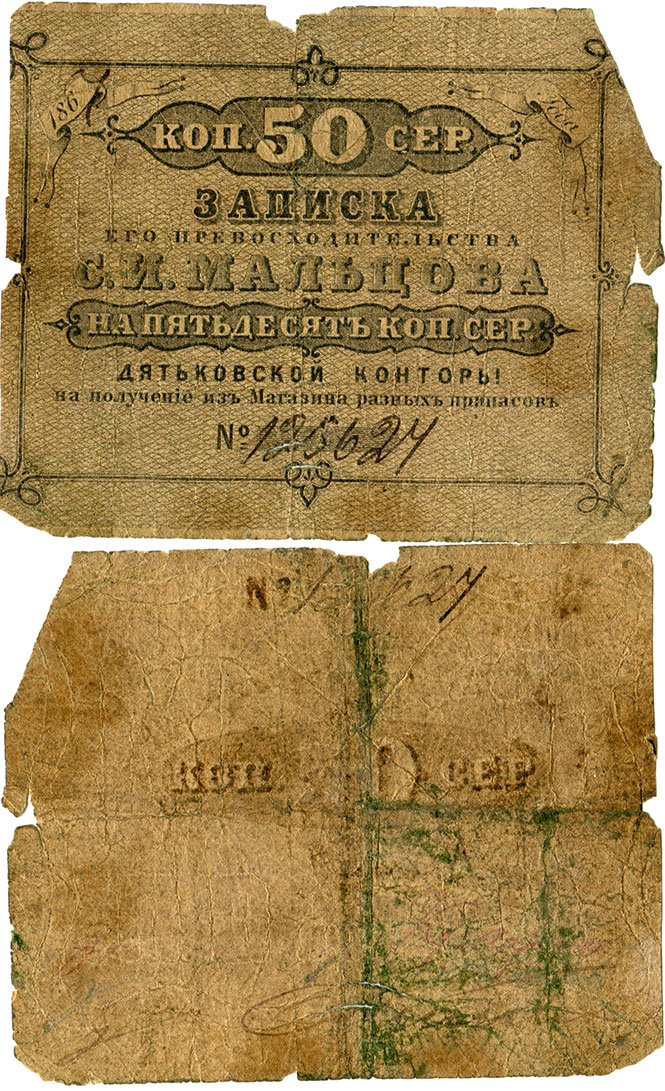 186 года
КОП. 50 СЕР.
ЗАПИСКА
ЕГО ПРЕВОСХОДИТЕЛЬСТВА
С. И. МАЛЬЦОВА
НА ПЯТЬДЕСЯТЪ КОП. СЕР.
ДЯТЬКОВСКОЙ КОНТОРЫ
на полученіе изъ Магазина разныхъ припасовъ
№ 125624
№ 1 624
КОП СЕР